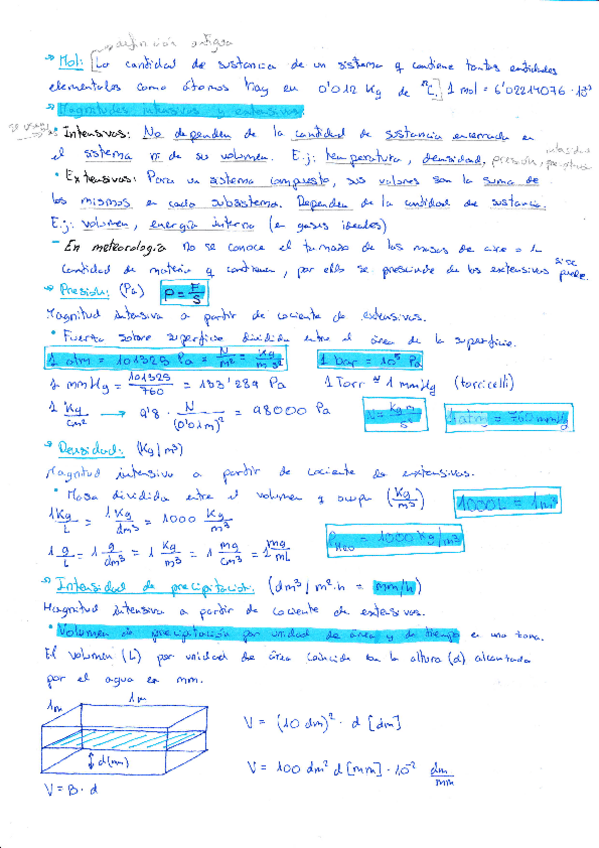 definición antigua
→ Mol: [La cantidad de sustancia de un sistema q contiene tantas entidades
elementales como átomos hay en 0'012 Kg de ¹²C.] 1 mol = 6'02214076·10²³
→ Magnitudes intensivas y extensivas:
• Intensivas: No dependen de la cantidad de sustancia encerrada en
el sistema ni de su volumen. E.j: temperatura, densidad, presión,
• Extensivas: Para un sistema compuesto, sus valores son la suma de
los mismos en cada subsistema. Dependen de la cantidad de sustancia.
E.j: volumen, energía interna (en gases ideales)
- En meteorología no se conoce el tamaño de las masas de aire = la
cantidad de materia q contienen, por ello se prescinde de los extensivos si se puede.
→ Presión: (Pa) P = F/S
Magnitud intensiva a partir de cociente de extensivas.
• Fuerza sobre superficie dividida entre el área de la superficie.
1 atm = 101325 Pa = N/m² = Kg/m s² 1 bar = 10⁵ Pa
1 mmHg = 101325/760 = 133'289 Pa 1 Torr ≅ 1 mmHg (torricelli)
1 Kg/cm² → 9'8 · N/(0'01m)² = 98000 Pa N = Kg m/s² 1 atm = 760 mmHg
→ Densidad: (Kg/m³)
Magnitud intensiva a partir de cociente de extensivas.
• Masa dividida entre el volumen q ocupa (Kg/m³) 1000L = 1m³
1Kg/L = 1Kg/dm³ = 1000 Kg/m³ ρH₂O = 1000 Kg/m³
1 g/L = 1 g/dm³ = 1 Kg/m³ = 1 mg/cm³ = 1 mg/mL
→ Intensidad de precipitación: (dm³/m²·h = mm/h)
Magnitud intensiva a partir de cociente de extensivas.
• Volumen de precipitación por unidad de área y de tiempo en una zona.
El volumen (L) por unidad de área coincide con la altura (d) alcanzada
por el agua en mm.
1m 1m
V = (10 dm)² · d [dm]
d(mm)
V = 100 dm² d [mm] · 10⁻² dm/mm
V = B · d